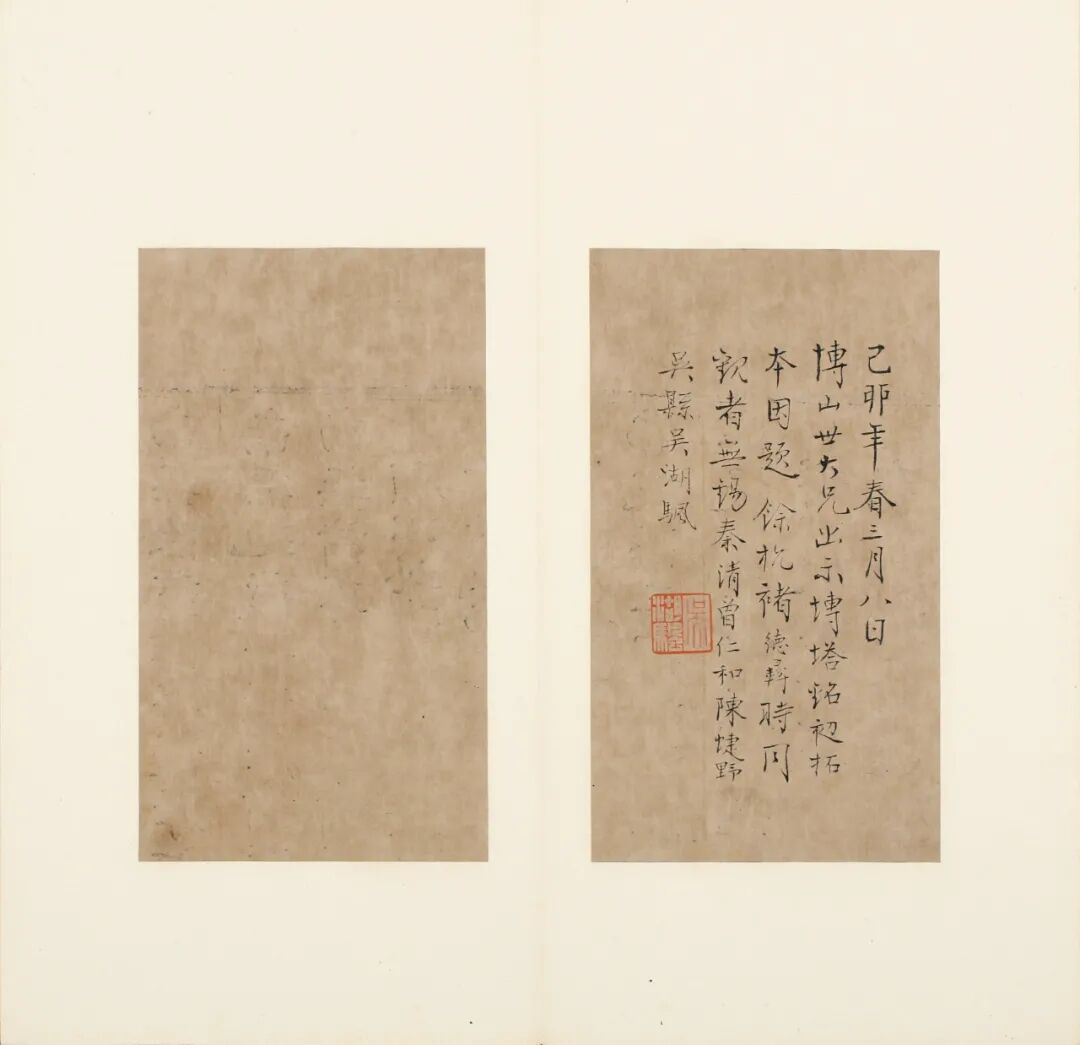 己卯年春三月八日
博山世大兄出示塼塔銘初拓
本因題 餘杭褚德彝時同
觀者無錫秦清曾仁和陳蜨野
吳縣吳湖颿